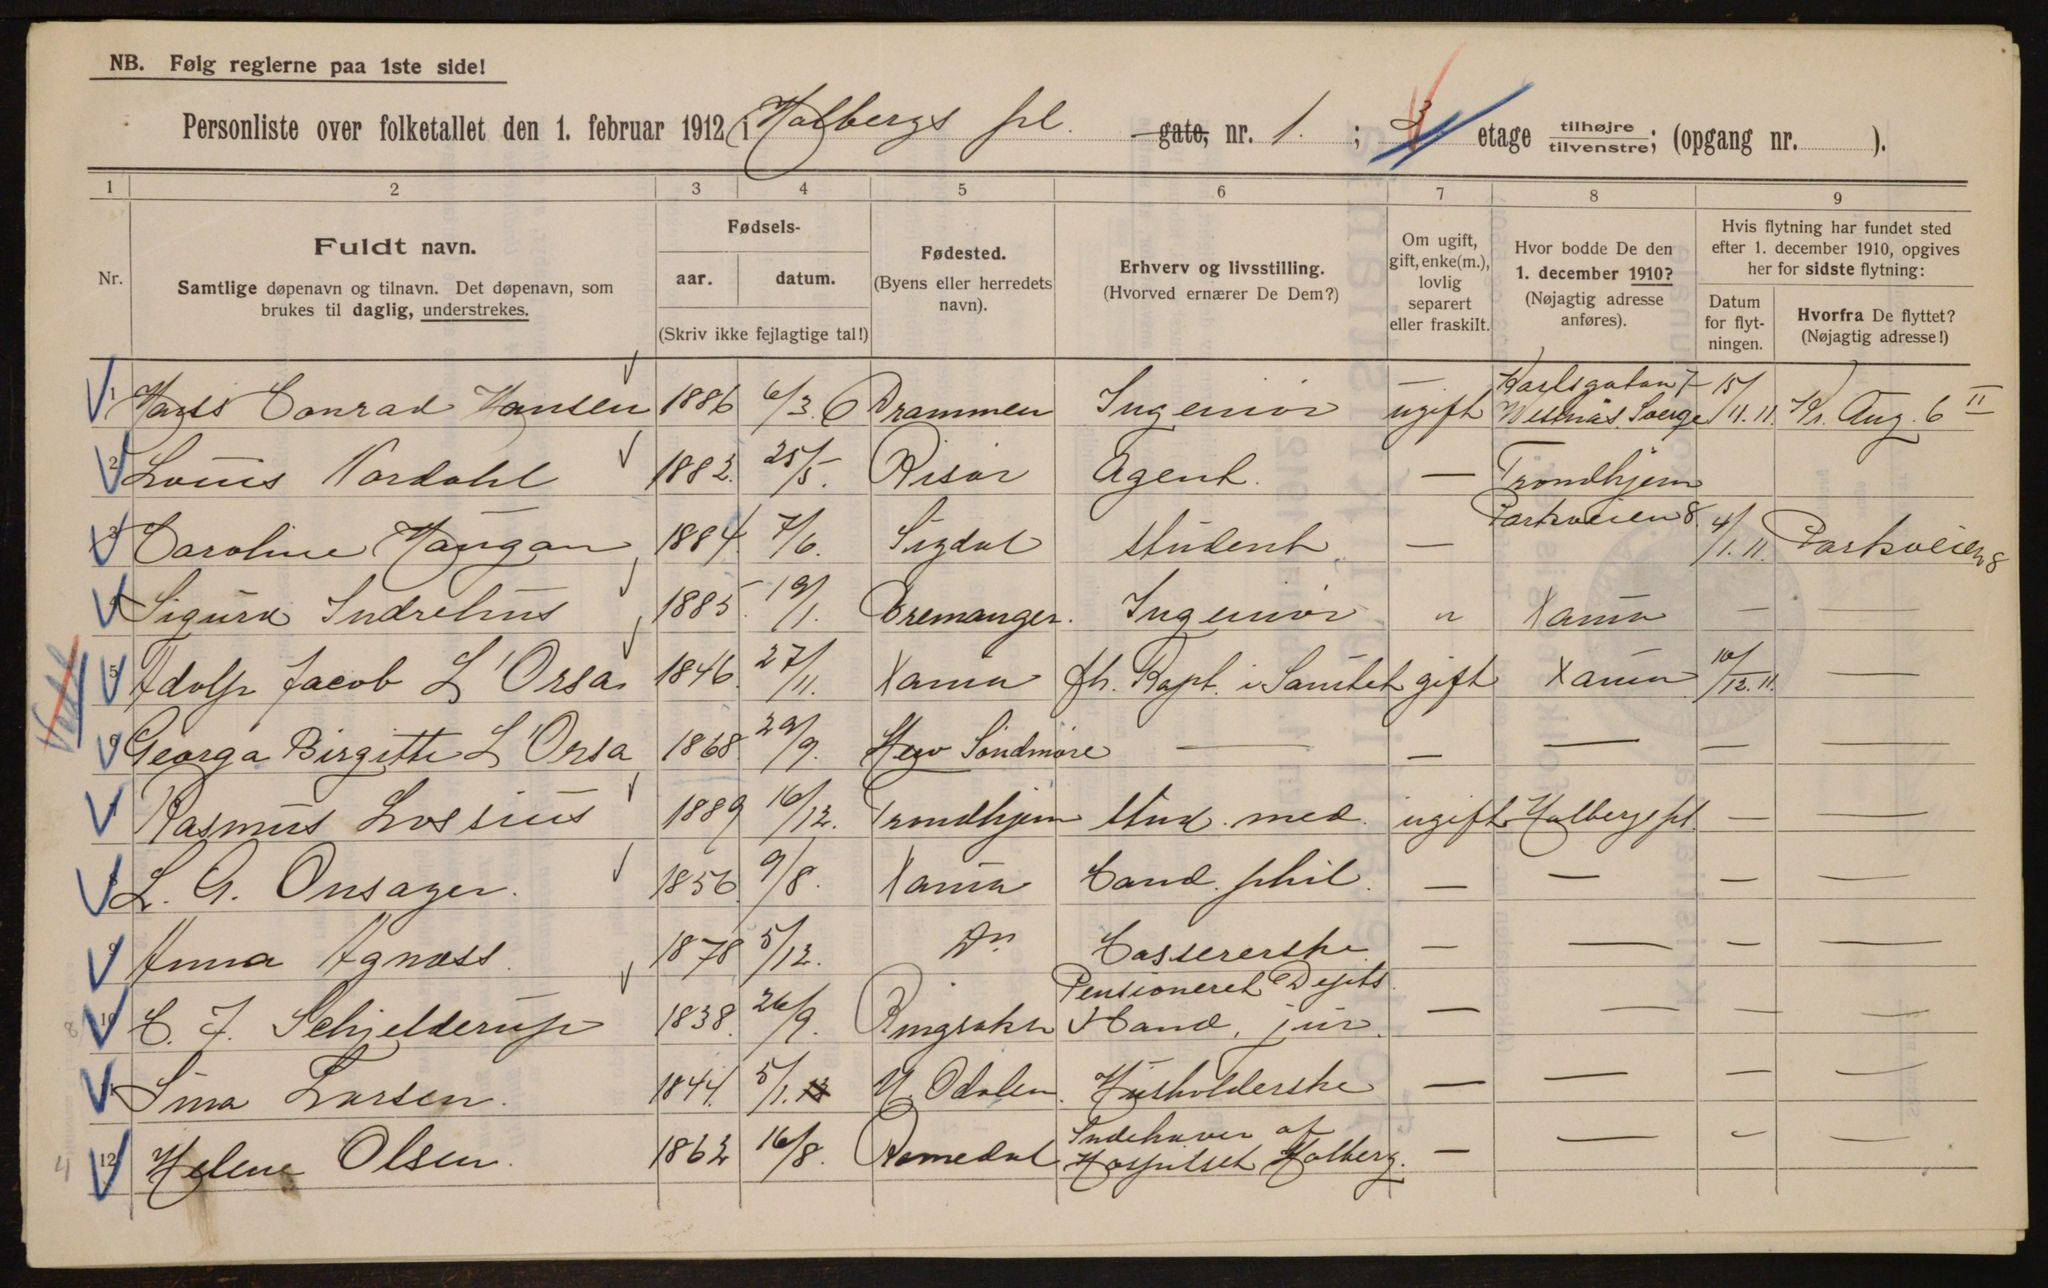 NB. Følg reglerne paa 1ste side!
Personliste over folketallet den 1. februar 1912 i Holbergs pl. gate, nr. 1. ; 3 etage tilhøjre tilvenstre; (opgang nr. ).
1 2 3 4 5 6 7 8 9
Nr.
Fuldt navn.
Samtlige døpenavn og tilnavn. Det døpenavn, som
brukes til daglig, understrekes.
Fødsels-
aar. datum.
(Skriv ikke fejlagtige tal!)
Fødested.
(Byens eller herredets
navn).
Erhverv og livsstilling.
(Hvorved ernærer De Dem?)
Om ugift,
gift, enke(m.),
lovlig
separert
eller fraskilt.
Hvor bodde De den
1. december 1910?
(Nøjagtig adresse
anføres).
Hvis flytning har fundet sted
efter 1. december 1910, opgives
her for sidste flytning:
Datum
for flyt-
ningen.
Hvorfra De flyttet?
(Nøjagtig adresse!)
1 Hans Conrad Hansen 1886 6/3. Drammen Ingeniør ugift Karlsgatan 7 Sverge 15/11.11. Kr. Aug. 6 II
2 Louis Nordahl 1882. 25/5. Risør Agent. — Trondhjem
3 Caroline Haugan 1884. 7/6. Sigdal student — Parkveien 8. 4/1.11. Parkveien 8
4 Sigurd Indrehus 1885. 19/1. Bremanger. Ingeniør " Xania — —
5 Adolp Jacob L'Orsa 1846. 27/11. Xania fh. Kapt. i Sanitet gift Xania 10/12.11. —
6 Georga Birgitte L'Orsa 1868. 29/9. Herø Søndmøre — — — — —
7 Rasmus Lossius 1889 16/12. Trondhjem stud. med. ugift Holbergs pl. — —
8 L. G. Onsager. 1856 9/8. Xania Cand. phil. — — — —
9 Anna Agnæss. 1878 5/12. Do. Cassererske — — — —
10 C. J. Schjelderup 1838. 26/9. Ringsaker Pensioneret Cand. jur. — — — —
11 Sina Larsen. 1844. 5/1. N. Odalen. Husholderske — — — —
12 Helene Olsen. 1862 16/8. Romedal Indehaver af Hospitset Holberg. — — — —
Vedl
4